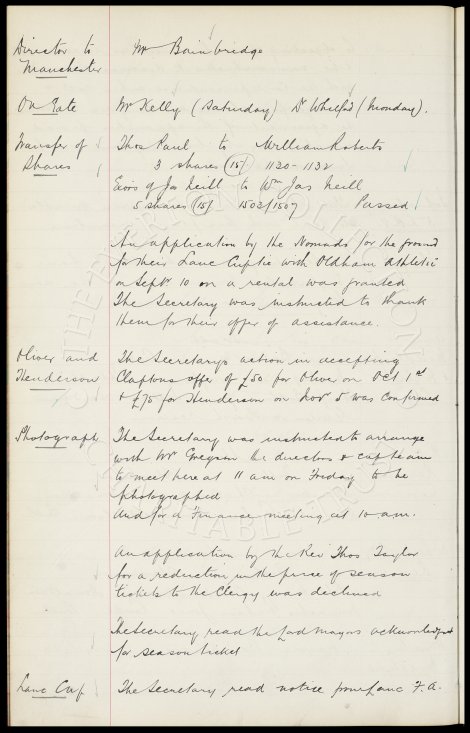 Director to Mr Bainbridge
Manchester
On Gate Mr Kelly (Saturday) Dr Whitford (Monday).
Transfer of Thos Paul to William Roberts
Shares 3 shares (15/) 1130-1132
Exors of Jas Neill to Wm Jas Neill
5 shares (15/) 1503/1507 Passed
An application by the Nomads for the ground
for their Lanc Cuptie with Oldham Athletic
on Sept 10 on a rental was granted
The Secretary was instructed to thank
them for their offer of assistance.
Oliver and The Secretarys action in accepting
Henderson Claptons offer of £50 for Oliver on Oct 1st
& £75 for Henderson on Nov 5 was confirmed
Photograph The Secretary was instructed to arrange
with Mr the directors & cup team
to meet here at 11 am on Friday to be
photographed
and for a Finance meeting at 10 am.
An application by the Rev Thos Taylor
for a reduction in the price of season
tickets to the Clergy was declined
The Secretary read the Lord Mayors acknowledgmt
for season ticket
Lanc Cup The Secretary read notice from Lanc F.A.
THE EVERTON COLLECTION
CHARITABLE TRUST